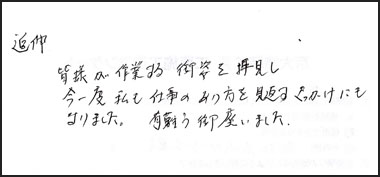 追伸
皆様が作業する御姿を拝見し
今一度私も仕事のあり方を見返るきっかけにも
なりました。 有難う御座いました.